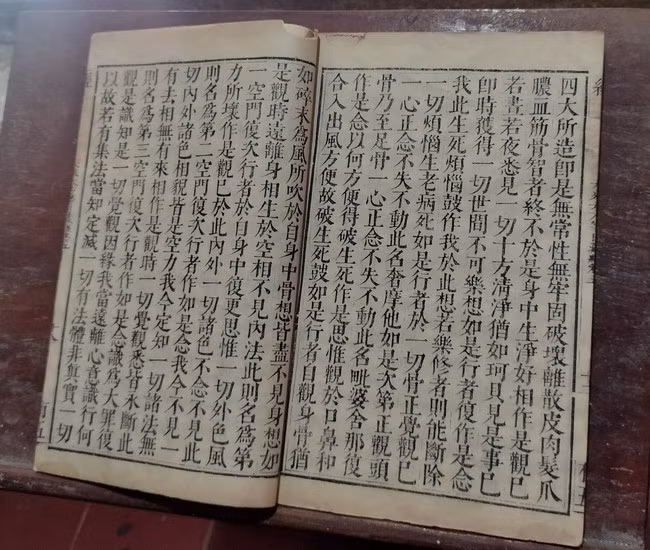 四大所造即是無常性無牢固破壞離散皮肉髮爪
膿血筋骨智者終不於是身中生淨好相作是觀已
若晝若夜悉見一切十方清淨猶如珂貝見是事已
即時獲得一切世間不可樂想如是行者復作是念
我此生死煩惱鼓作我於此想若樂修者則能斷除
一切煩惱生老病死如是行者於一切骨正覺觀已
一心正念不失不動此名奢摩他如是次第正觀頭
骨乃至足骨一心正念不失不動此名毗婆舍那復
作是念以何方便得破生死作是思惟觀於口鼻和
合入出風方便故破生死鼓如是行者自觀身骨猶
如碎末為風所吹於自身中骨想皆盡不見身想如
是觀時遠離身相生於空相不見內法此則名為第
一空門復次行者於自身中復更思惟一切外色風
力所壞作是觀已於此內外一切諸色不念不見此
則名為第二空門復次行者作如是念我今不見一
切內外諸色相貌皆是空力我今定知一切諸法無
有去相無有來相作是觀時一切覺觀悉皆永斷此
則名為第三空門復次行者作如是念識為大罪復
觀是識知是一切覺觀因緣我當遠離心意識行何
以故若有集法當知定滅一切有法體非真實一切